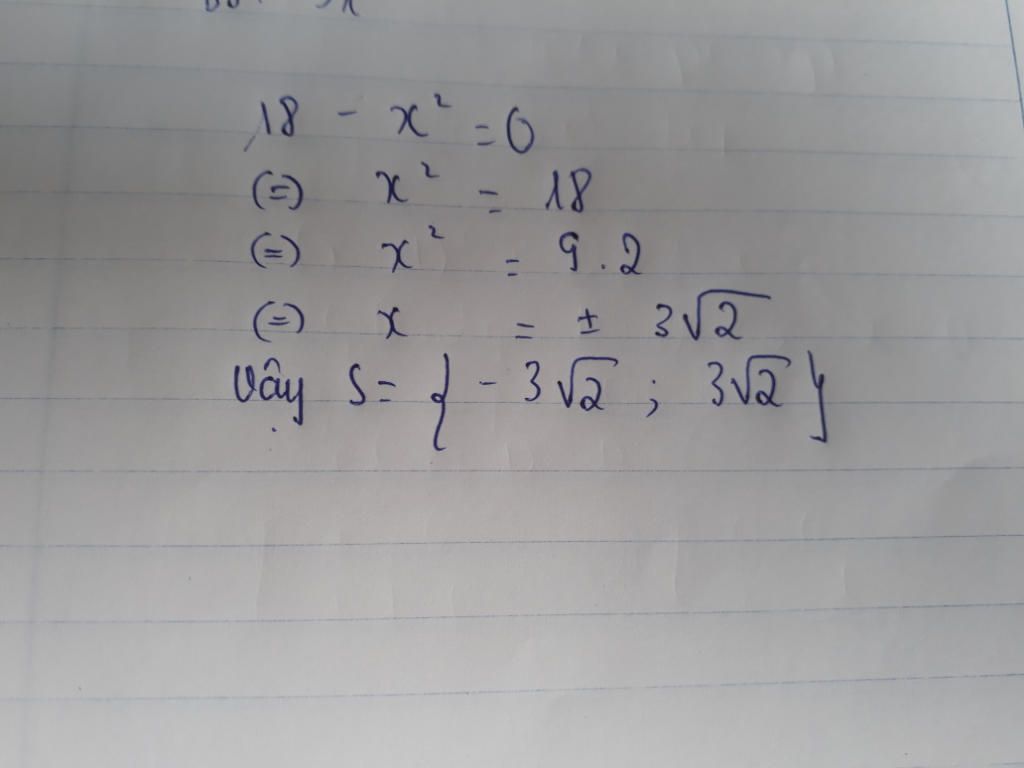 18 - x² = 0
(=) x² = 18
(=) x² = 9.2
(=) x = ± 3√2
Vậy S = { - 3√2 ; 3√2 }